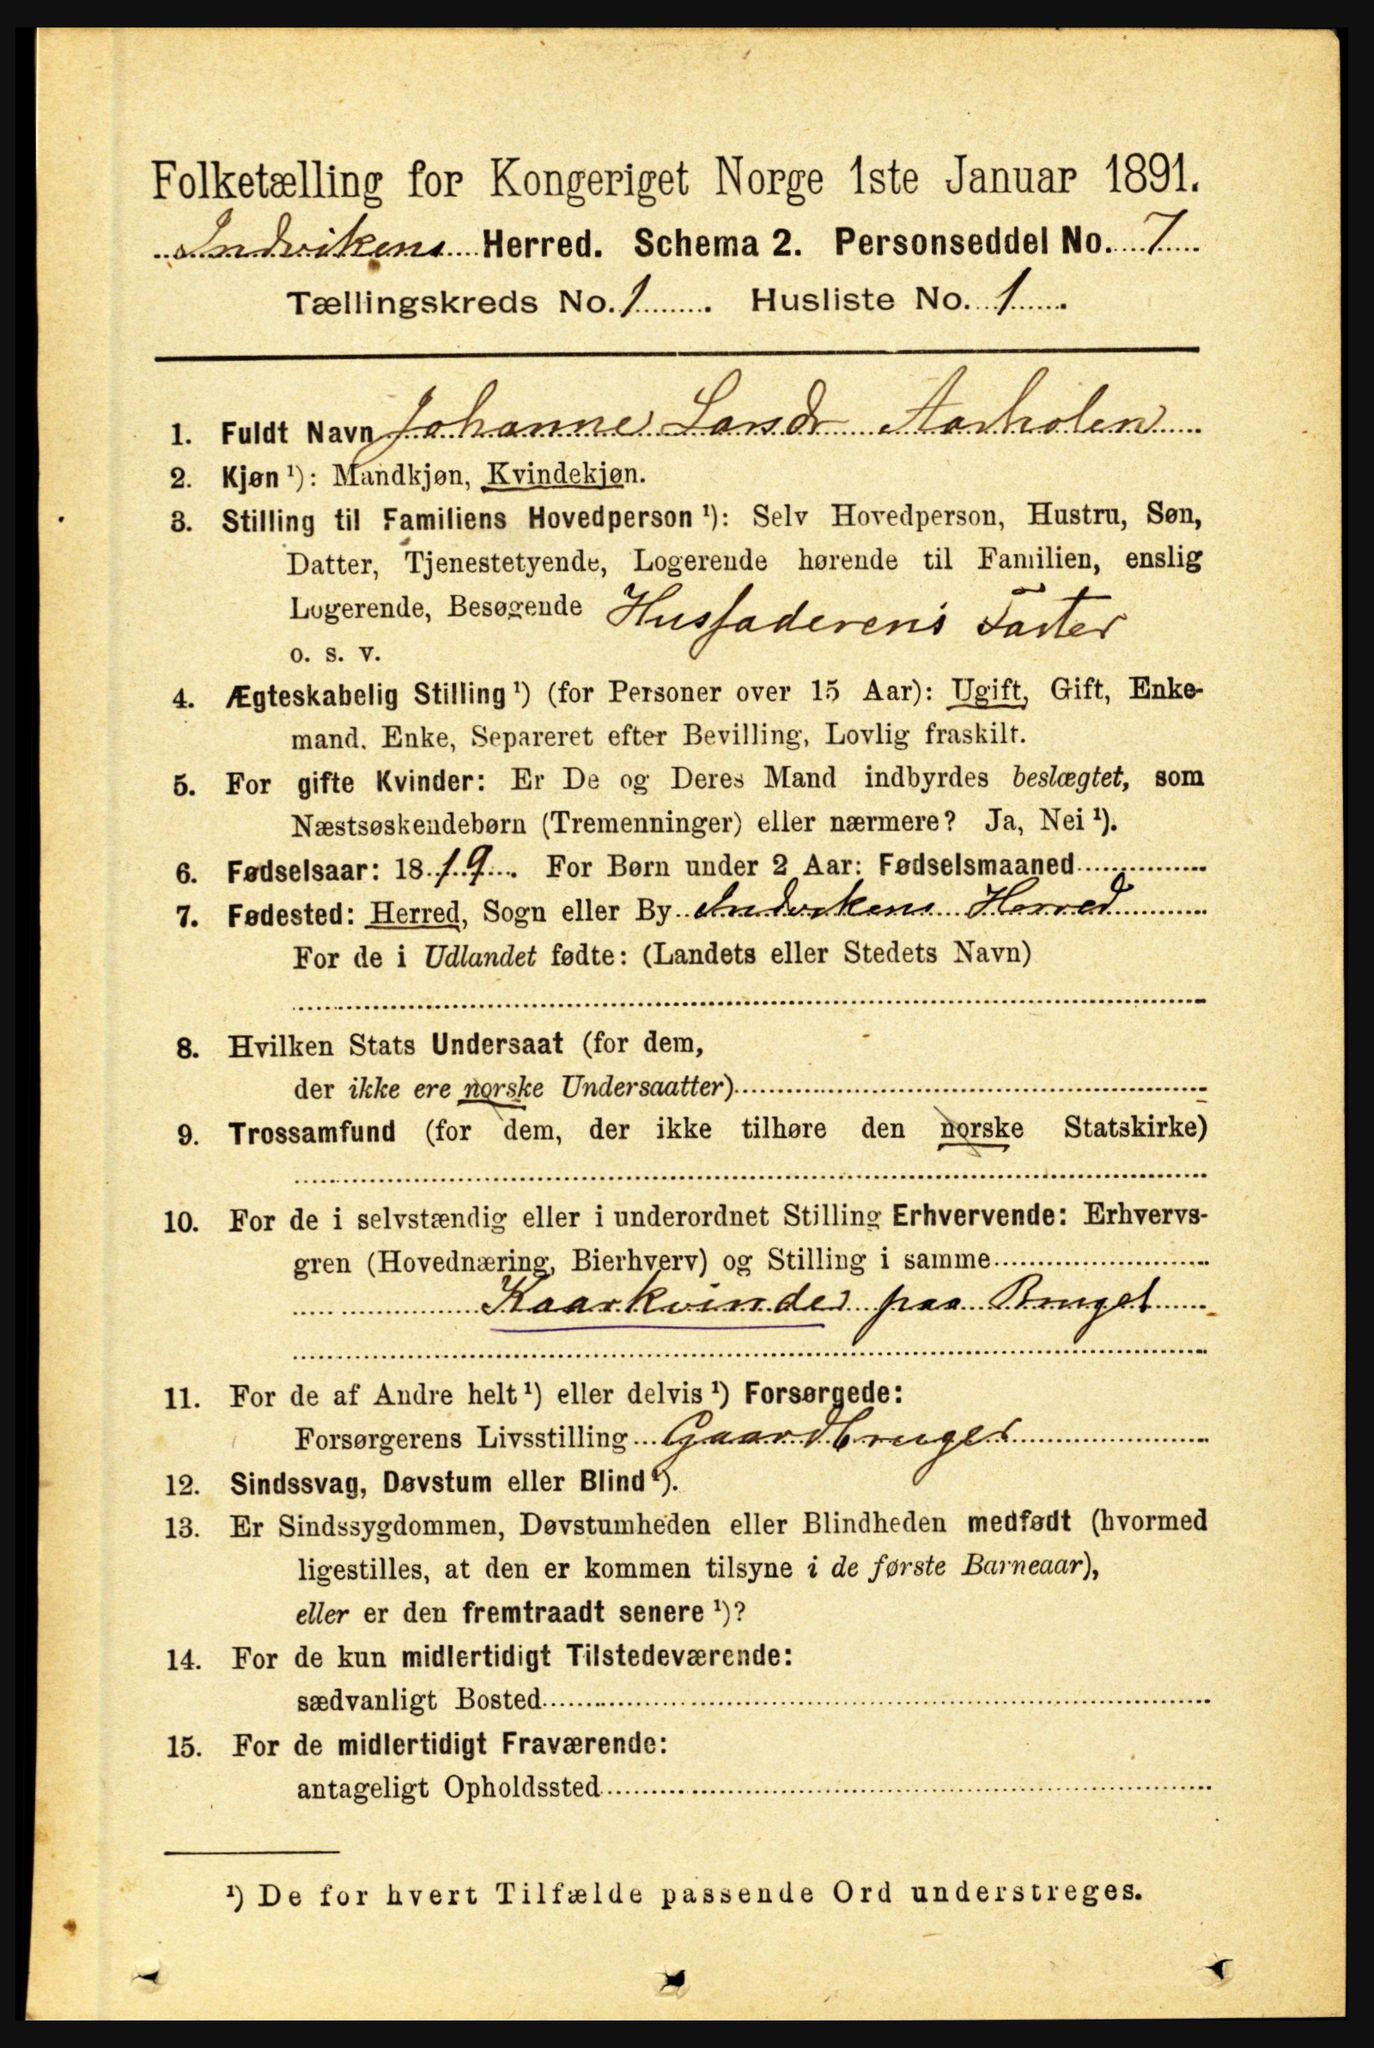 Folketælling for Kongeriget Norge 1ste Januar 1891.
Indvikens Herred. Schema 2. Personseddel No. 7
Tællingskreds No. 1. Husliste No. 1.
1. Fuldt Navn Johanne Larsdr Aarholen
2. Kjøn ¹): Mandkjøn, Kvindekjøn.
3. Stilling til Familiens Hovedperson ¹): Selv Hovedperson, Hustru, Søn,
Datter, Tjenestetyende, Logerende hørende til Familien, enslig
Logerende, Besøgende Husfaderens Faster
o. s. v.
4. Ægteskabelig Stilling ¹) (for Personer over 15 Aar): Ugift, Gift, Enke-
mand, Enke, Separeret efter Bevilling, Lovlig fraskilt.
5. For gifte Kvinder: Er De og Deres Mand indbyrdes beslægtet, som
Næstsøskendebørn (Tremenninger) eller nærmere? Ja, Nei ¹).
6. Fødselsaar: 1819. For Børn under 2 Aar: Fødselsmaaned
7. Fødested: Herred, Sogn eller By Indvikens Herred
For de i Udlandet fødte: (Landets eller Stedets Navn)
8. Hvilken Stats Undersaat (for dem,
der ikke ere norske Undersaatter)
9. Trossamfund (for dem, der ikke tilhøre den norske Statskirke)
10. For de i selvstændig eller i underordnet Stilling Erhvervende: Erhvervs-
gren (Hovednæring, Bierhverv) og Stilling i samme
Kaarkvinde paa Bruget
11. For de af Andre helt ¹) eller delvis ¹) Forsørgede:
Forsørgerens Livsstilling Gaardbruger
12. Sindssvag, Døvstum eller Blind ¹).
13. Er Sindssygdommen, Døvstumheden eller Blindheden medfødt (hvormed
ligestilles, at den er kommen tilsyne i de første Barneaar),
eller er den fremtraadt senere ¹)?
14. For de kun midlertidigt Tilstedeværende:
sædvanligt Bosted
15. For de midlertidigt Fraværende:
antageligt Opholdssted
¹) De for hvert Tilfælde passende Ord understreges.